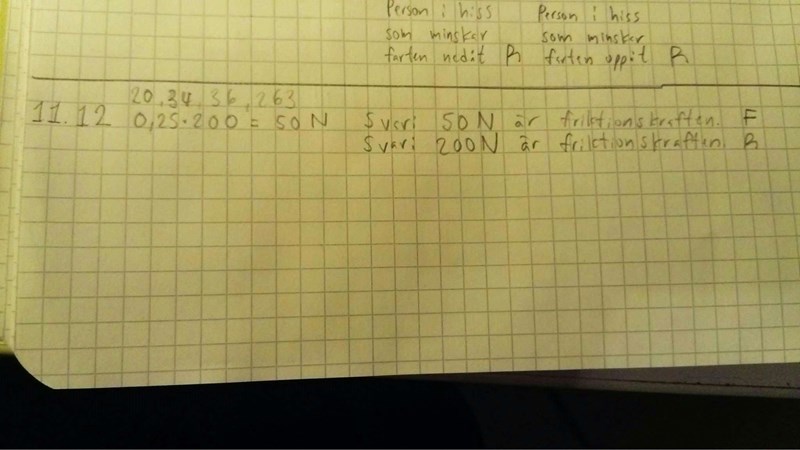 Person i hiss
som minsker
farten nedåt R
Person i hiss
som minsker
farten uppåt R
20,34,36,263
11.12 0,25·200 = 50 N Svar: 50N är friktionskraften. F
Svar: 200N är friktionskraften. R